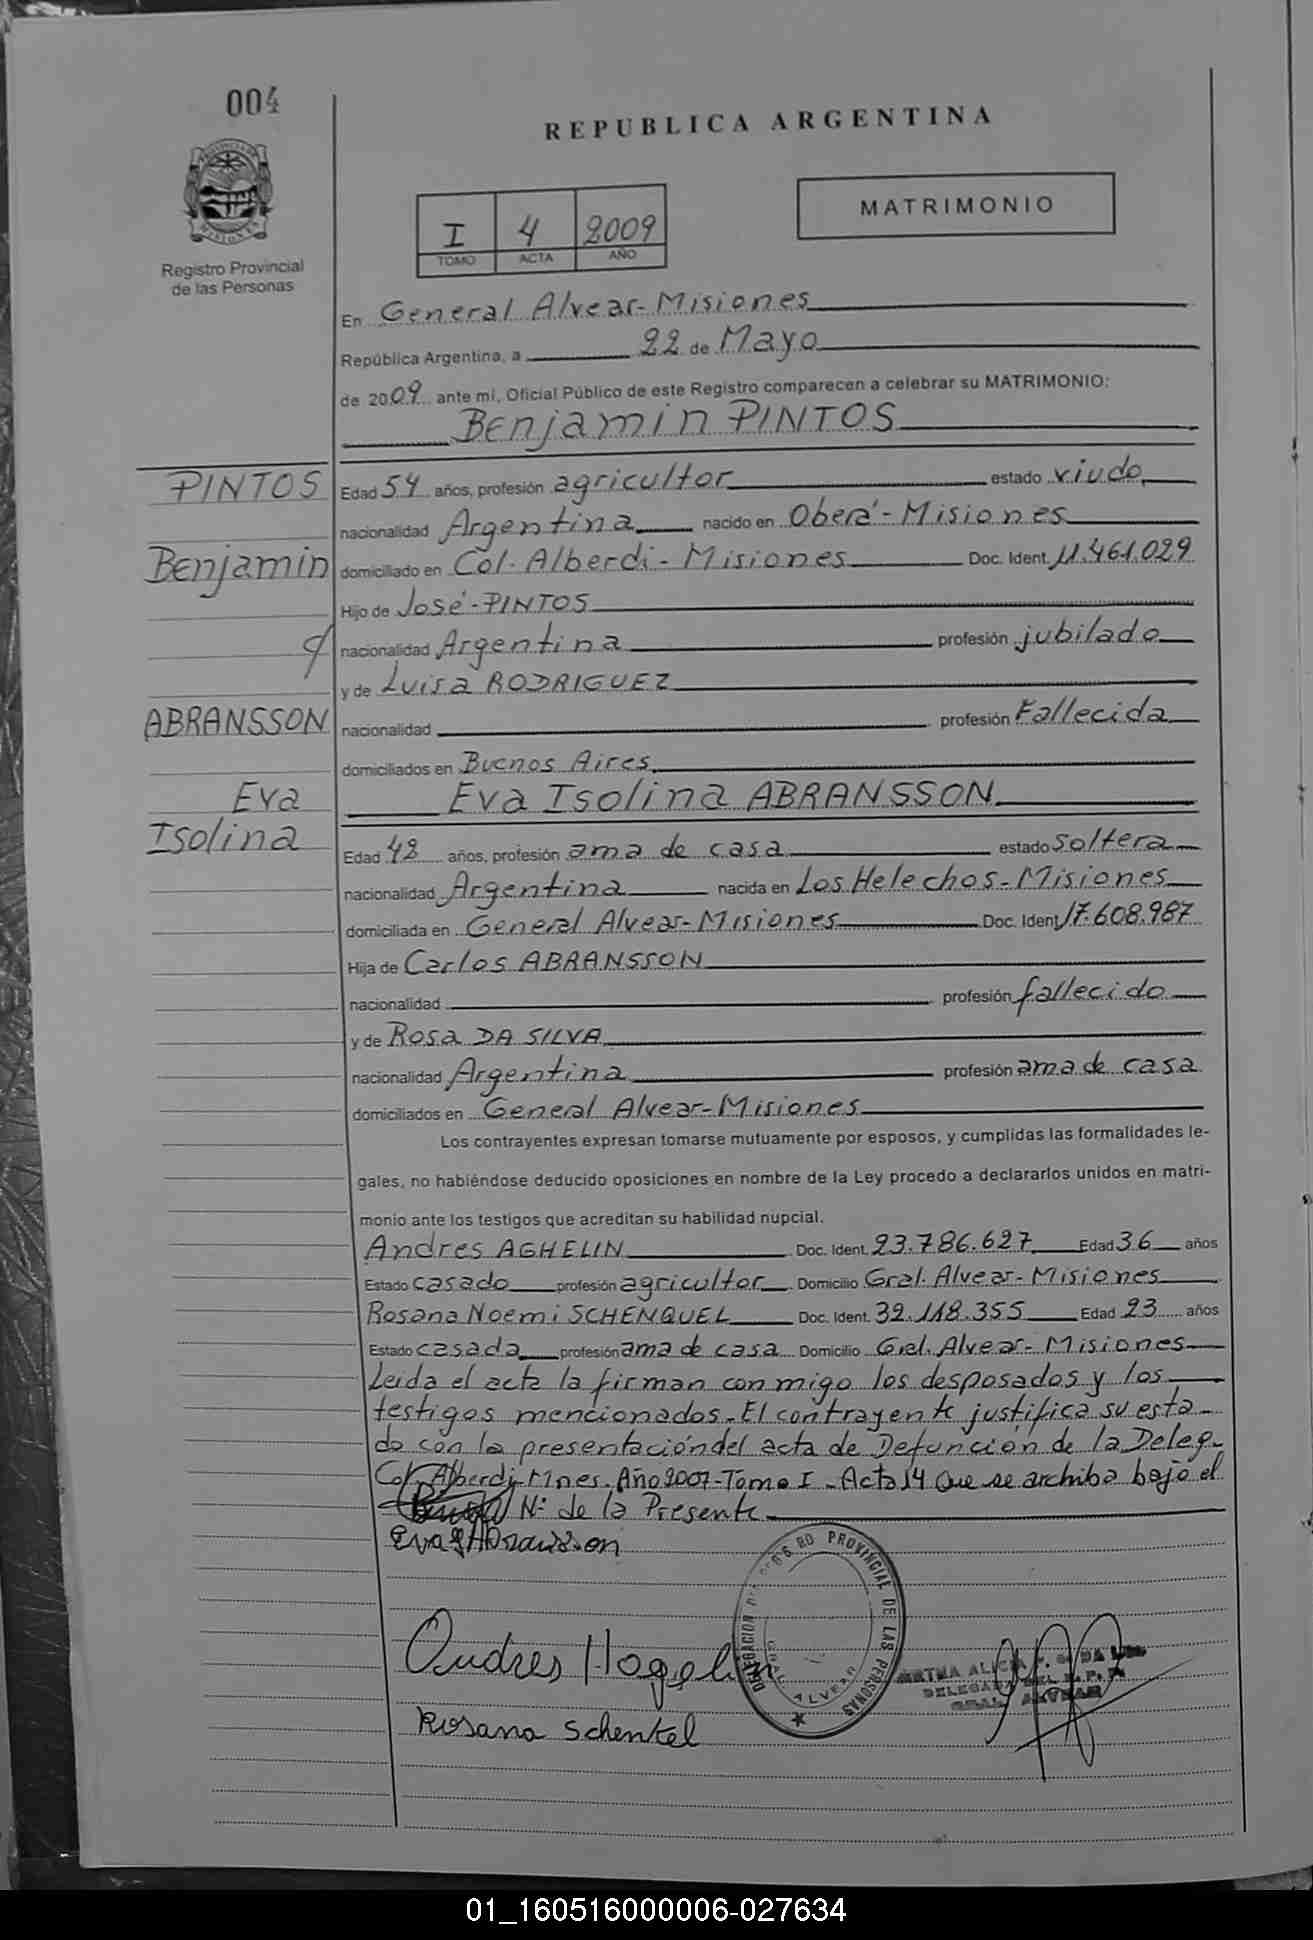 004
REPUBLICA ARGENTINA
MATRIMONIO
I 4 2009
TOMO ACTA AÑO
MISIONES
Registro Provincial
de las Personas
En General Alvear-Misiones
República Argentina, a 22 de Mayo
de 2009 ante mi, Oficial Público de este Registro comparecen a celebrar su MATRIMONIO:
Benjamin PINTOS
PINTOS
Edad 54 años, profesión agricultor estado viudo
nacionalidad Argentina nacido en Oberá-Misiones
Benjamin
domiciliado en Col. Alberdi-Misiones Doc. Ident. 11.461.029
Hijo de José-PINTOS
nacionalidad Argentina profesión jubilado
y de Luisa RODRIGUEZ
ABRANSSON
nacionalidad profesión Fallecida
domiciliados en Buenos Aires
Eva
Isolina
Eva Isolina ABRANSSON
Edad 48 años, profesión ama de casa estado soltera
nacionalidad Argentina nacida en Los Helechos-Misiones
domiciliada en General Alvear-Misiones Doc. Ident 17.608.987
Hija de Carlos ABRANSSON
nacionalidad profesión fallecido
y de Rosa DA SILVA
nacionalidad Argentina profesión ama de casa
domiciliados en General Alvear-Misiones
Los contrayentes expresan tomarse mutuamente por esposos, y cumplidas las formalidades le-
gales, no habiéndose deducido oposiciones en nombre de la Ley procedo a declararlos unidos en matri-
monio ante los testigos que acreditan su habilidad nupcial.
Andres AGHELIN Doc. Ident. 23.786.627 Edad 36 años
Estado casado profesión agricultor Domicilio Gral. Alvear-Misiones
Rosana Noemi SCHENQUEL Doc. Ident. 32.118.355 Edad 23 años
Estado casada profesión ama de casa Domicilio Gral. Alvear-Misiones
Leida el acta la firman con migo los desposados y los
testigos mencionados. El contrayente justifica su esta-
do con la presentación del acta de Defunción de la Deleg.
Col. Alberdi-Mnes. Año 2007-Tomo I-Acta 14 Que se archiba bajo el
N° de la Presente
Andres Hogelin
Rosana Schenkel
DELEGACION REGISTRO PROVINCIAL DE LAS PERSONAS
GRAL ALVEAR
ALICIA
DELEGADA DEL R. P. P.
GRAL. ALVEAR
01_160516000006-027634